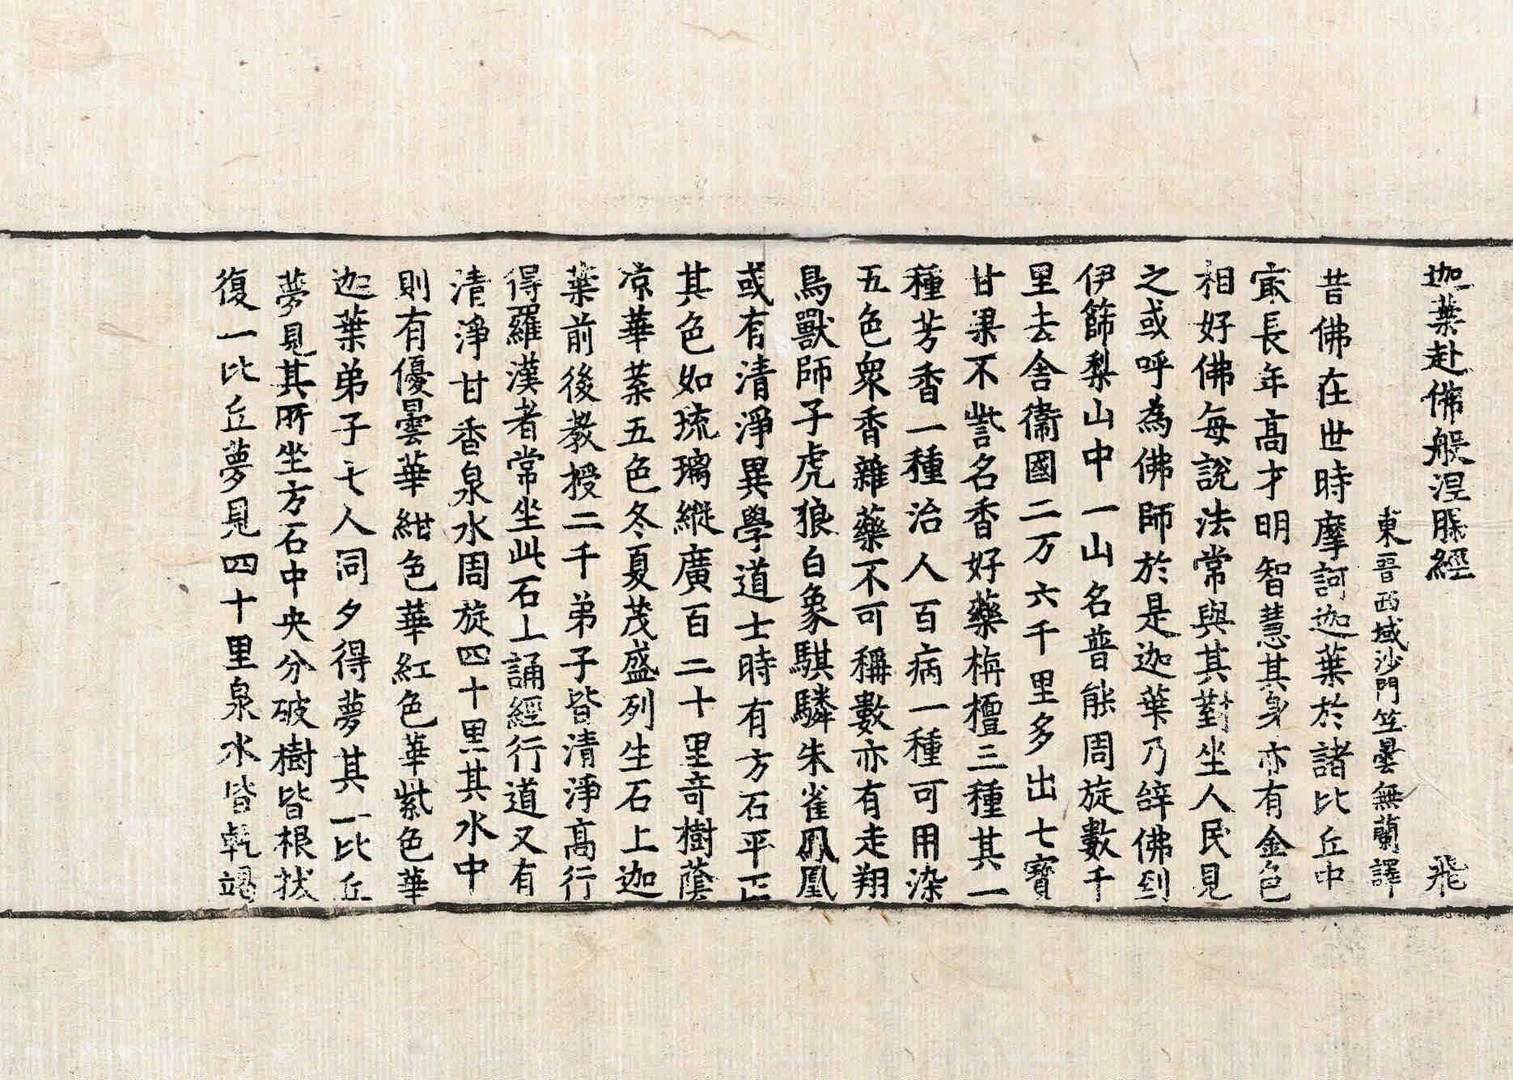 迦葉赴佛般涅槃經 飛
東晉西域沙門竺曇無蘭譯
昔佛在世時摩訶迦葉於諸比丘中
㝡長年高才明智慧其身亦有金色
相好佛每說法常與其對坐人民見
之或呼為佛師於是迦葉乃辝佛到
伊篩梨山中一山名普能周旋數千
里去舍衛國二万六千里多出七寶
甘果不訾名香好藥栴檀三種其一
種芳香一種治人百病一種可用染
五色衆香雜藥不可稱數亦有走翔
鳥獸師子虎狼白象騏驎朱雀鳳凰
或有清淨異學道士時有方石平正
其色如琉璃縱廣百二十里奇樹蔭
凉華菓五色冬夏茂盛列生石上迦
葉前後教授二千弟子皆清淨高行
得羅漢者常坐此石上誦經行道又有
清淨甘香泉水周旋四十里其水中
則有優曇華紺色華紅色華紫色華
迦葉弟子七人同夕得夢其一比丘
夢見其所坐方石中央分破樹皆根拔
復一比丘夢見四十里泉水皆乹竭